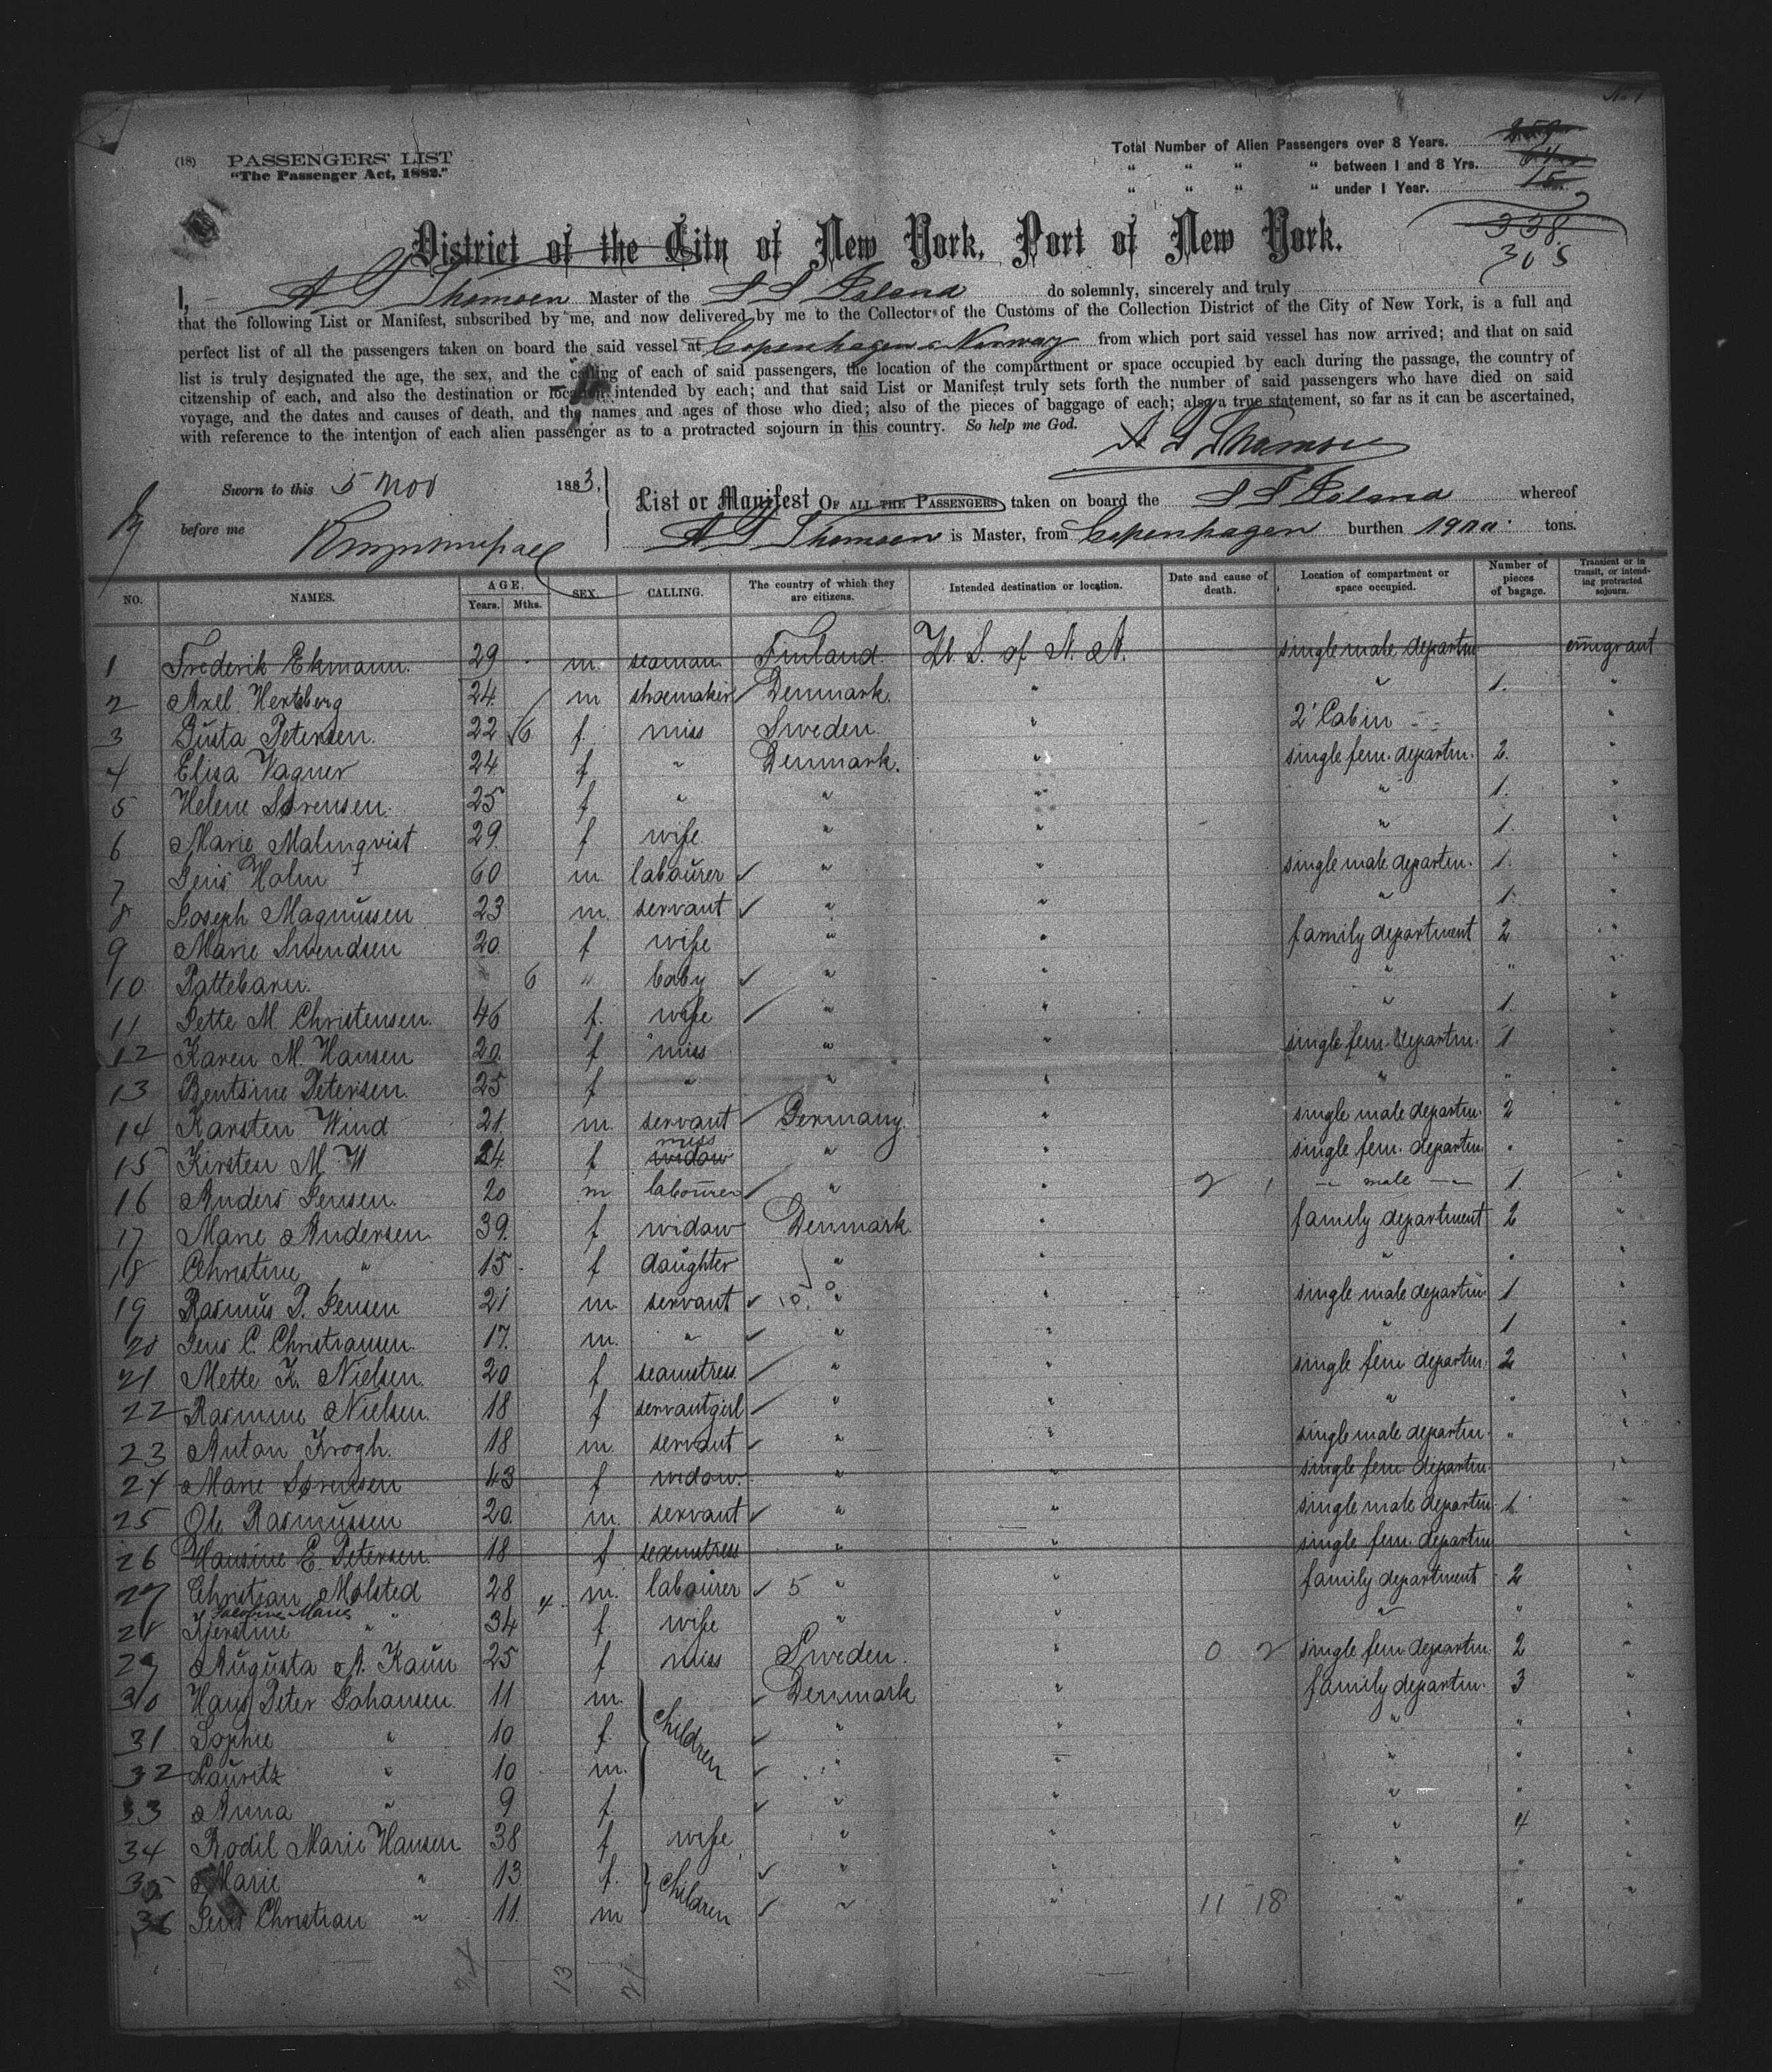 No 1
(18) PASSENGERS' LIST
"The Passenger Act, 1882."
Total Number of Alien Passengers over 8 Years. 259
" " " " between 1 and 8 Yrs. 64
" " " " under 1 Year. 15
338
305
District of the City of New York, Port of New York.
I, A P Thomsen Master of the S S Island do solemnly, sincerely and truly
that the following List or Manifest, subscribed by me, and now delivered by me to the Collector of the Customs of the Collection District of the City of New York, is a full and
perfect list of all the passengers taken on board the said vessel at Copenhagen & Norway from which port said vessel has now arrived; and that on said
list is truly designated the age, the sex, and the calling of each of said passengers, the location of the compartment or space occupied by each during the passage, the country of
citzenship of each, and also the destination or location intended by each; and that said List or Manifest truly sets forth the number of said passengers who have died on said
voyage, and the dates and causes of death, and the names and ages of those who died; also of the pieces of baggage of each; also a true statement, so far as it can be ascertained,
with reference to the intention of each alien passenger as to a protracted sojourn in this country. So help me God.
A P Thomsen
Sworn to this 5 Nov 1883,
before me
List or Manifest OF ALL THE PASSENGERS taken on board the S S Island whereof
A P Thomsen is Master, from Copenhagen burthen tons.
NO. NAMES. AGE. Years. Mths. SEX. CALLING. The country of which they are citizens. Intended destination or location. Date and cause of death. Location of compartment or space occupied. Number of pieces of bagage. Transient or in transit, or intending protracted sojourn.
1 Frederik Ekmann. 29 m. seaman Finland U. S. of N. A. single male departm emigrant
2 Axel Hertzberg 24 m shoemaker Denmark. " " 1. "
3 Gusta Petersen. 22 6 f. miss Sweden. " 2' Cabin "
4 Elisa Vagner 24 f " Denmark. " single fem. departm. 2. "
5 Helene Sørensen. 25 f " " " " 1. "
6 Marie Malmqvist 29. f wife " " " 1. "
7 Jens Holm 60 m labourer " " single male departm. 1. "
8 Joseph Magnussen 23 m. servant " " " 1. "
9 Marie Svendsen 20 f wife " " family department 2 "
10 Pattebarn. 6 " baby " " " " "
11 Jette M. Christensen. 46 f. wife " " " 1. "
12 Karen M. Hansen 20. f miss " " single fem. departm. 1 "
13 Bentsine Petersen. 25 f " " " " " "
14 Karsten Wind 21. m. servant Germany. " single male departm. 2 "
15 Kirsten M. W 24 f widow miss " " single fem. departm. " "
16 Anders Jensen. 20 m labourer " " 2 1 male 1. "
17 Marie Andersen 39. f. widow Denmark. " family department 2 "
18 Christine " 15 f daughter " " " " "
19 Rasmus P. Jensen 21 m. servant " " single male departm. 1 "
20 Jens C. Christiansen. 17. m. " " " " 1 "
21 Mette K. Nielsen. 20 f seamstress " " single fem departm. 2 "
22 Rasmine Nielsen. 18 f servantgirl " " " " "
23 Anton Krogh. 18 m. servant " " single male departm. " "
24 Marie Sørensen 43 f widow. " " single fem departm "
25 Ole Rasmussen 20. m. servant " " single male departm. 1. "
26 Hansine E. Petersen. 18 f seamstress " " single fem. departm "
27 Christian Molsted 28 4 m. labourer 5 " " family department 2 "
28 Kjerstine Marie " 34 f. wife " " " " "
29 Augusta A. Kaun 25 f miss Sweden. " 0 2 single fem departm. 2 "
30 Hans Peter Johansen. 11 m. children Denmark " family departm. 3 "
31 Sophie " 10 f. " " " " "
32 Lauritz " 10 m. " " " " "
33 Anna " 9 f. " " " "
34 Bodil Marie Hansen 38 f wife " " " 4 "
35 Marie " 13 f. children " " " " "
36 Jens Christian " 11. m " " 11 18 " " "
13 21